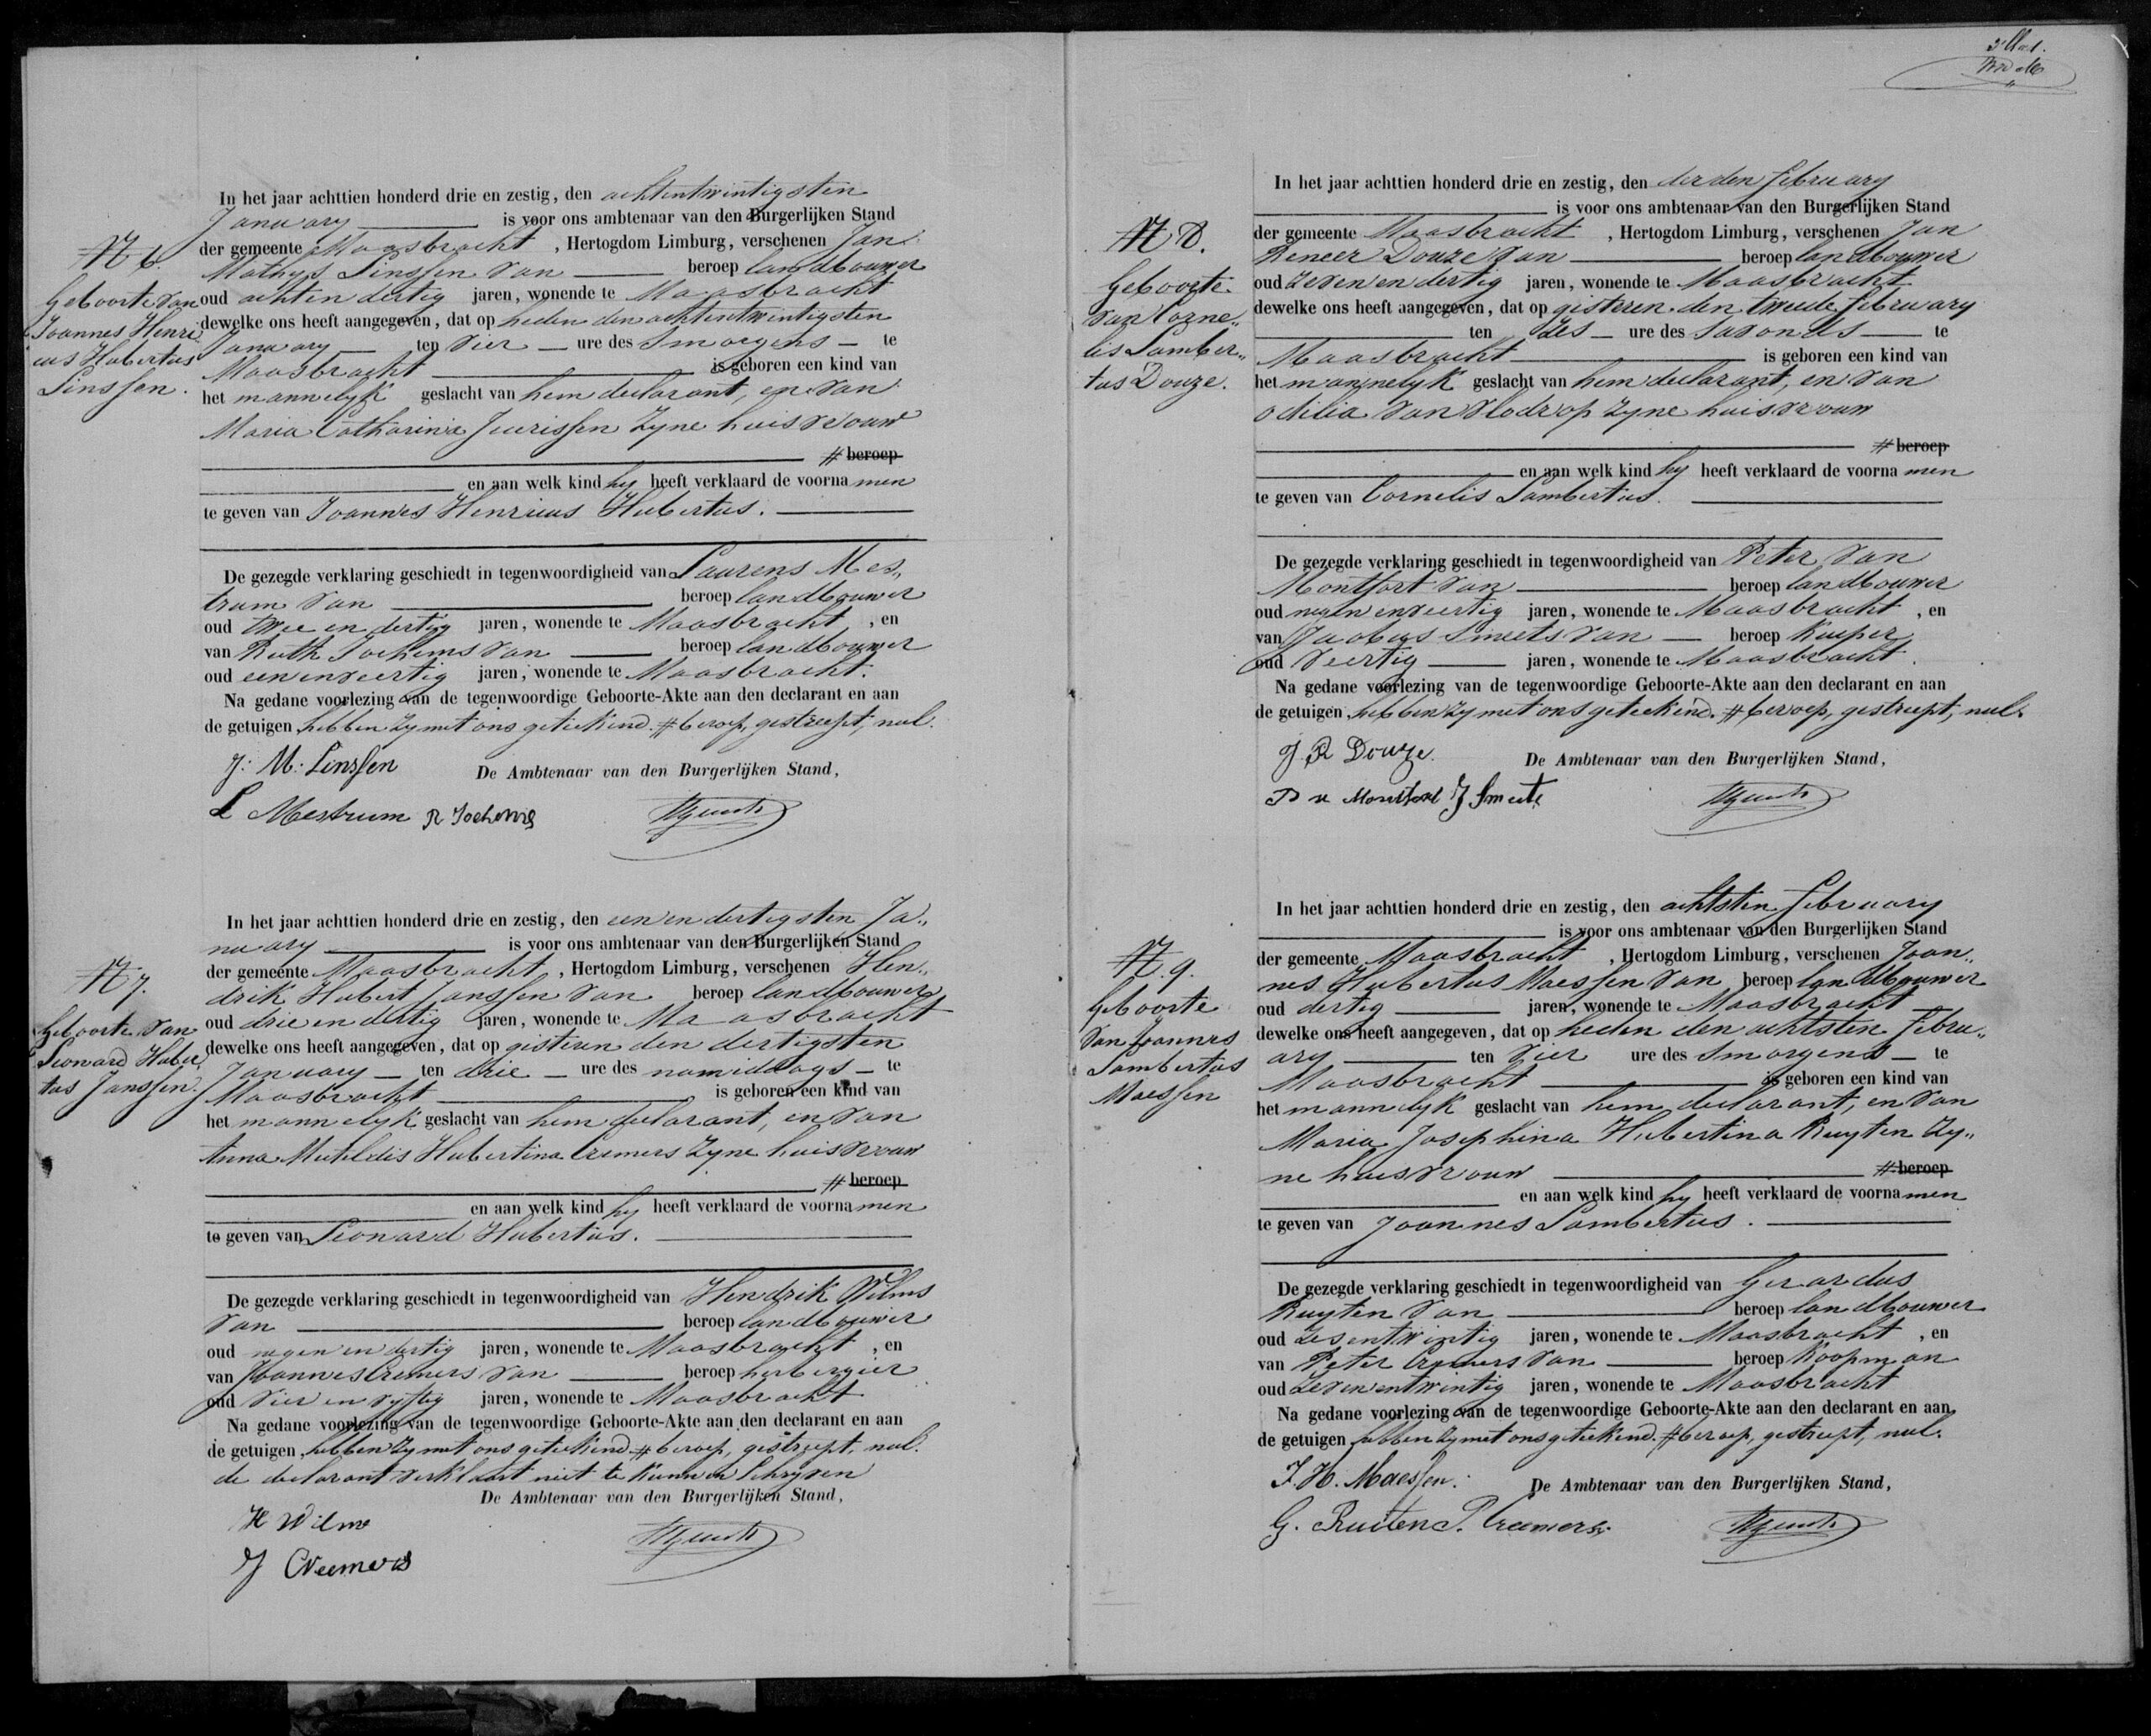 In het jaar achttien honderd drie en zestig, den achtentwintigsten
January is voor ons ambtenaar van den Burgerlijken Stand
der gemeente Maasbracht, Hertogdom Limburg, verschenen Jan
Mathys Linssen van beroep landbouwer
oud achtendertig jaren, wonende te Maasbracht
dewelke ons heeft aangegeven, dat op heden den achtentwintigsten
January ten vier ure des Smorgens te
Maasbracht is geboren een kind van
het mannelyk geslacht van hem declarant, en van
Maria Catharina Jeurissen Zyne huisvrouw
# beroep
en aan welk kind hy heeft verklaard de voornamen
te geven van Joannes Henricus Hubertus.
De gezegde verklaring geschiedt in tegenwoordigheid van Laurens Mes„
trum van beroep landbouwer
oud twee en dertig jaren, wonende te Maasbracht, en
van Ruth Jochems van beroep landbouwer
oud eenenveertig jaren, wonende te Maasbracht.
Na gedane voorlezing van de tegenwoordige Geboorte-Akte aan den declarant en aan
de getuigen hebben zy met ons geteekend. # beroep, gestreept, nul.
J: M: Linssen De Ambtenaar van den Burgerlijken Stand,
L Mestrum R Jochems
N 6.
Geboorte van
Joannes Henri
cus Hubertus
Linssen.
In het jaar achttien honderd drie en zestig, den eenendertigsten Ja„
nuary is voor ons ambtenaar van den Burgerlijken Stand
der gemeente Maasbracht, Hertogdom Limburg, verschenen Hen„
drik Hubert Janssen van beroep landbouwer
oud drie en dertig jaren, wonende te Maasbracht
dewelke ons heeft aangegeven, dat op gisteren den dertigsten
January ten drie ure des namiddags te
Maasbracht is geboren een kind van
het mannelyk geslacht van hem declarant, en van
Anna Mechtildis Hubertina Cremers Zyne huisvrouw
# beroep
en aan welk kind hy heeft verklaard de voornamen
te geven van Leonard Hubertus.
De gezegde verklaring geschiedt in tegenwoordigheid van Hendrik Wilms
van beroep landbouwer
oud negen en dertig jaren, wonende te Maasbracht, en
van Joannes Cremers van beroep herbergier
oud vier en vyftig jaren, wonende te Maasbracht
Na gedane voorlezing van de tegenwoordige Geboorte-Akte aan den declarant en aan
de getuigen hebben zy met ons geteekend # beroep, gestreept, nul.
de declarant verklaart niet te kunnen schryven
De Ambtenaar van den Burgerlijken Stand,
H Wilms
J Creemers
N 7.
Geboorte van
Leonard Huber
tus Janssen.
In het jaar achttien honderd drie en zestig, den derden february
is voor ons ambtenaar van den Burgerlijken Stand
der gemeente Maasbracht, Hertogdom Limburg, verschenen Jan
Reneer Douze van beroep landbouwer
oud zevenendertig jaren, wonende te Maasbracht
dewelke ons heeft aangegeven, dat op gisteren den tweede february
ten zes ure des Savonds te
Maasbracht is geboren een kind van
het mannelyk geslacht van hem declarant, en van
Odilia van Vlodrop zyne huisvrouw
# beroep
en aan welk kind hy heeft verklaard de voornamen
te geven van Cornelis Lambertus.
De gezegde verklaring geschiedt in tegenwoordigheid van Peter van
Montfort van beroep landbouwer
oud negen enveertig jaren, wonende te Maasbracht, en
van Jacobus Smeets van beroep Kuiper
oud veertig jaren, wonende te Maasbracht.
Na gedane voorlezing van de tegenwoordige Geboorte-Akte aan den declarant en aan
de getuigen hebben zy met ons geteekend. # beroep, gestreept, nul.
J R Douze. De Ambtenaar van den Burgerlijken Stand,
P v Montfort J Smeets
N 8.
Geboorte
van Corne„
lis Lamber„
tus Douze.
In het jaar achttien honderd drie en zestig, den achtsten february
is voor ons ambtenaar van den Burgerlijken Stand
der gemeente Maasbracht, Hertogdom Limburg, verschenen Joan„
nes Hubertus Maessen van beroep landbouwer
oud dertig jaren, wonende te Maasbracht
dewelke ons heeft aangegeven, dat op heden den achtsten febru„
ary ten vier ure des Smorgens te
Maasbracht is geboren een kind van
het mannelyk geslacht van hem declarant, en van
Maria Josephina Hubertina Ruyten Zy„
ne huisvrouw # beroep
en aan welk kind hy heeft verklaard de voornamen
te geven van Joannes Lambertus.
De gezegde verklaring geschiedt in tegenwoordigheid van Gerardus
Ruyten van beroep landbouwer
oud zesentwintig jaren, wonende te Maasbracht, en
van Peter Cremers van beroep Koopman
oud zevenentwintig jaren, wonende te Maasbracht
Na gedane voorlezing van de tegenwoordige Geboorte-Akte aan den declarant en aan
de getuigen hebben zy met ons geteekend. # beroep, gestreept, nul.
J. H. Maessen. De Ambtenaar van den Burgerlijken Stand,
G. Ruiten P. Creemers.
N. 9.
Geboorte
van Joannes
Lambertus
Maessen